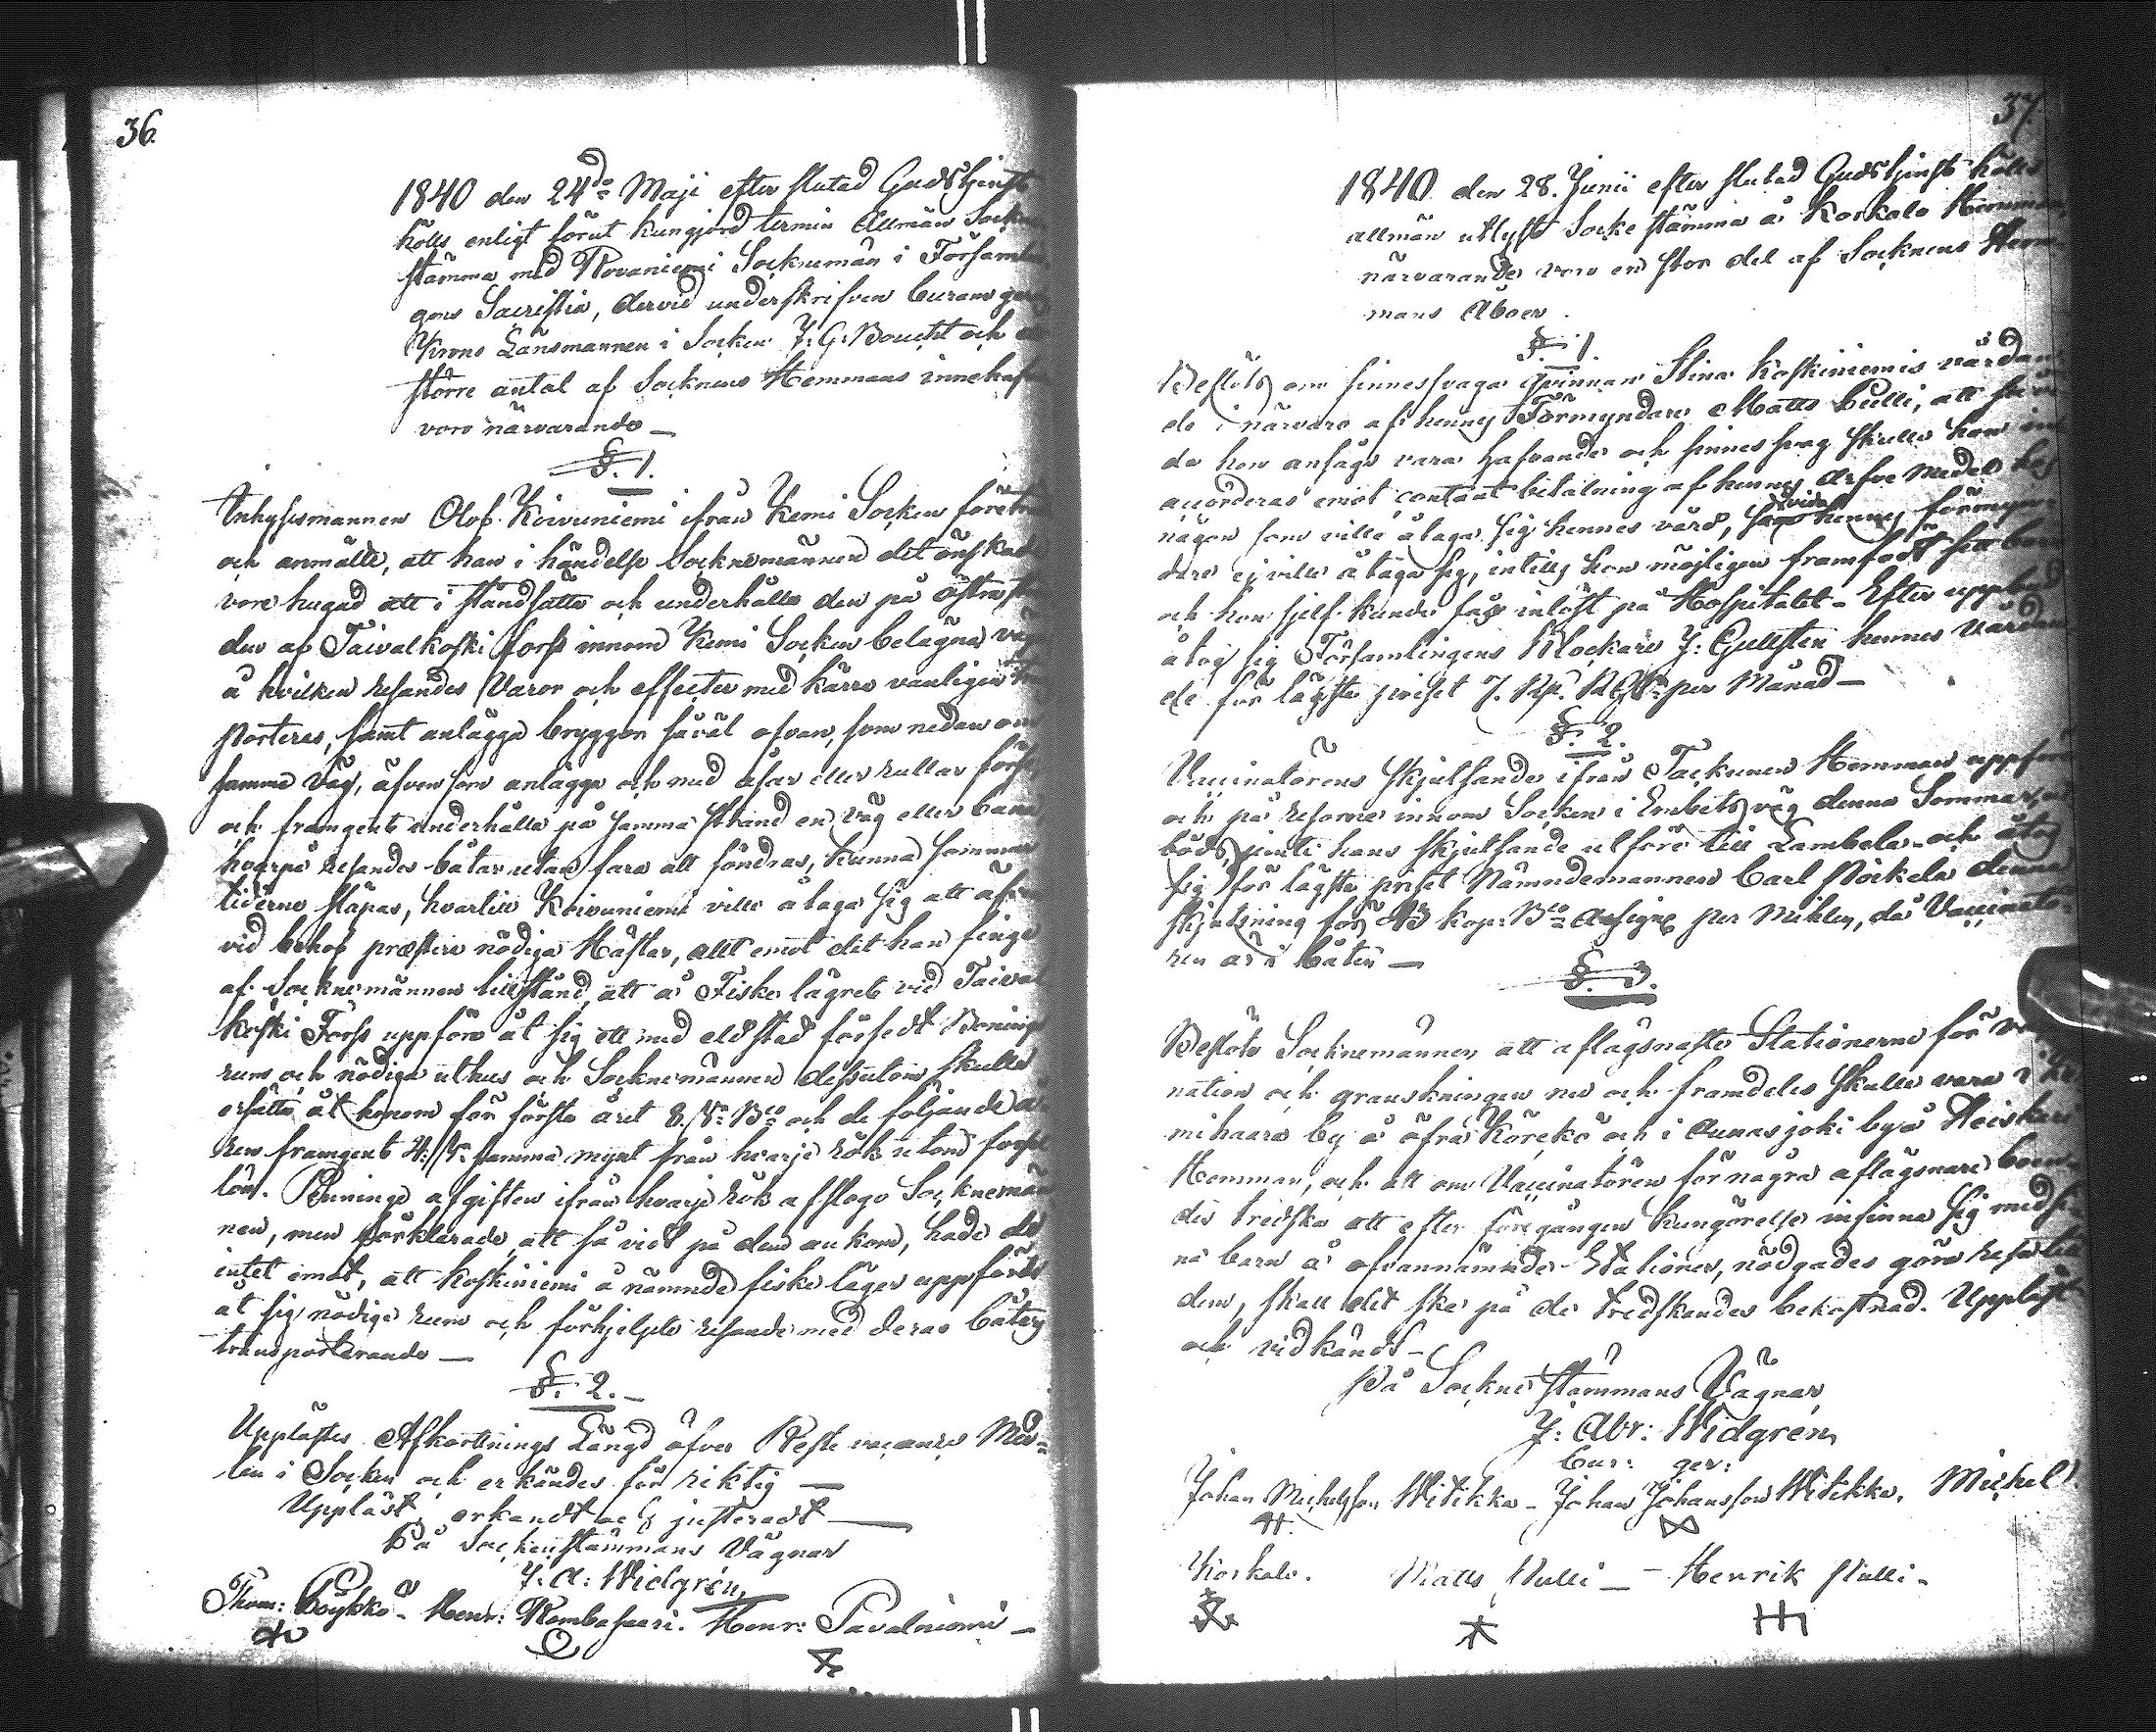 36.
1840 den 24de Maji efter slutad Gudstjenst
hölls enligt förut kungjord termin Allmän Sockne
stämma med Rovaniemi Socknemän i Församlin
gens Sacristia, dervid underskrifven Curam gerens
Krono Länsmannen i Socken J: G: Boucht och ett
större antal af Socknens Hemmans innehafvare
voro närvarande —
§. 1.
Inhysesmannen Olof Koivuniemi ifrån Kemi Socken företrädde
och anmälte, att han i händelse Socknemännen det önskade
vore hugad att i ståndsätta och underhålla den på östra stran
den af Taivalkoski fors innom Kemi Socken belägna väg
å hvilken resandes Varor och effecter med kärra vanligen trans
porteras, samt anlägga bryggor såväl ofvan, som nedan om
samma väg, äfvensom anlägga och med åsar eller rullar förse
och framgent underhålla på samma strand en väg eller bana,
hvarpå resandes båtar utan fara att söndras, kunna sommar
tiderne släpas, hvartill Koivuniemi ville åtaga sig att äfven
vid behof præstera nödiga Hästar, allt emot det han finge
af Socknemännen tillstånd, att å Fiske lägret vid Taival
koski Fors uppföra åt sig ett med eldstad försedt Bonings
rum och nödiga uthus och Socknemännen dessutom skulle
ersätta åt honom för första året 8. Bco och de följande å
ren framgent 4. samma mynt från hvarje rök utom forsel
lön. Pennings afgiften ifrån hvarje rök afslogo Socknemän
nen, men förklarade, att så vidt på dem ankom, hade de
intet emot, att Koskiniemi å nämnde fiske läger uppförde
åt sig nödiga rum och förhjelpte resande med deras båtars
transporterande —
§. 2. —
Upplästes Afkortnings Längd öfver Reste vacance Med-
len i Socken och erkändes för riktig —
Uppläst, erkandt och justeradt —
På Sockenstämmans Vägnar
J: A: Widgrén
Thom: Pöykkö — Henr: Rombasaari. Henr: Pavalniemi —
37.
1840. den 28. Junii efter slutad Gudstjenst hölls
allmän utlyst Socke stämma å Korkalo Hemman,
närvarande voro en stor del af Socknens Hem-
mans Åboer.
§. 1.
Beslöts om sinnessvaga qvinnan Stina Koskiniemis vårdan
de i närvaro af hennes Förmyndare Matts Pulli, att
da hon ansågs vara hafvande och sinnes svag skulle hon
accorderas emot contant betalning af hennes arfve medel hos
någon som ville åtaga sig hennes vård, hennes förmyn
dare ej ville åtaga sig, intills hon möjligen framfödt sitt barn
och hon sjelf kunde få inlöst på Hospitalet — Efter uppbud
åtog sig Församlingens Klockare J: Gullsten hennes vårdan
de för lägsta priset 7. Rp. per Månad —
§. 2.
Vaccinatorens skjutsande ifrån Tackunen Hemman uppför
och på resorne innom Socken i Embets väg denna Sommar,
böds, hans skjutsande utföre till Lambela och åtog
sig för lägsta priset Nämndemannen Carl Pöckela denna
skjutsning för kop: Bco Assign per Mihles, då Vaccinato-
ren är i båten —
§. 3.
Beslöto Socknemännen, att aflägsnaste Stationerne för vacci
nation och granskningen nu och framdeles skulle vara i
mihaara by å öfra Körckö och i Aunasjoki by å Heiskari
Hemman, och att om Vaccinatören för några aflägsnare boen-
des tredska att efter föregången kungörelse infinna sig med si-
na barn å ofvannämnde Stationer, nödgades göra resa till
dem, skall det ske på de tredskandes bekostnad. Uppläst
och vidkändt —
På Sockne stämmans Vägnar,
J: Abr: Widgrén
Cur: ger:
Johan Michelsson Witikka — Johan Johansson Witikka. Michel
Korkalo. Matts Pulli — Henrik Pulli —